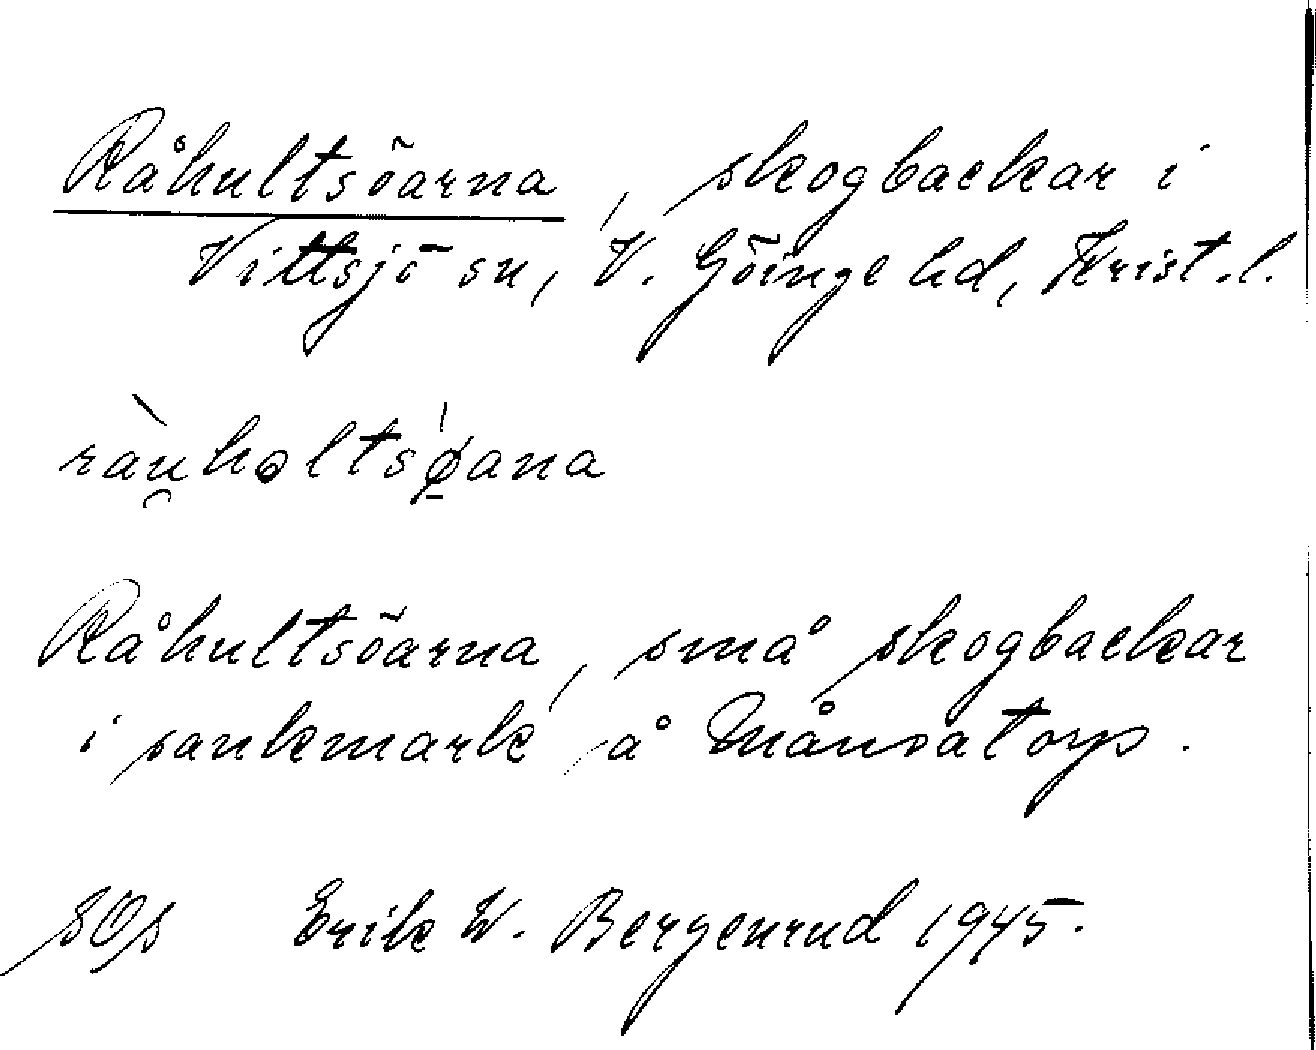 Råhultsöarna, skogbackar i
Vittsjö sn, V. Göinge hd, Krist. l.
ràu̯hɷltsǿ̠ana
Råhultsöarna, små skogbackar
i sankmark å Månsatorp.
Erik W. Bergenrud 1945.